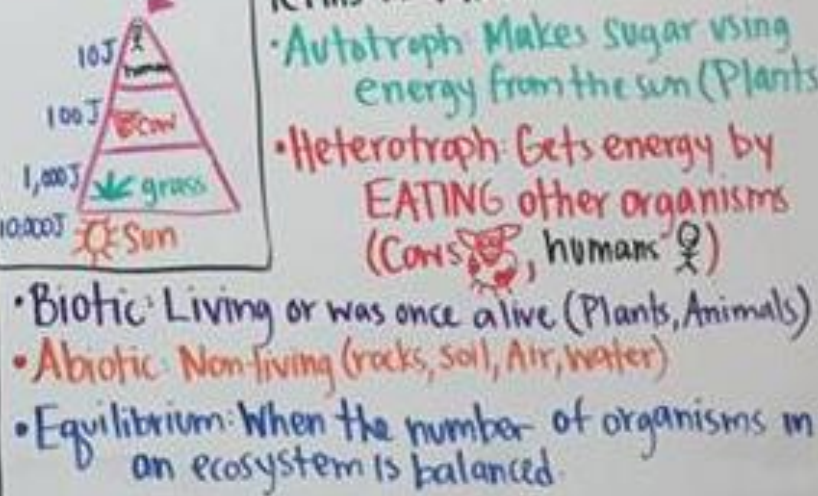 10J human
100J Cow
1,000J grass
10,000J Sun
•Autotroph: Makes sugar using
energy from the sun (Plants
•Heterotroph: Gets energy by
EATING other organisms
(Cows, humans)
•Biotic: Living or was once alive (Plants, Animals)
•Abiotic: Non-living (rocks, Soil, Air, water)
•Equilibrium: When the number of organisms in
an ecosystem is balanced.